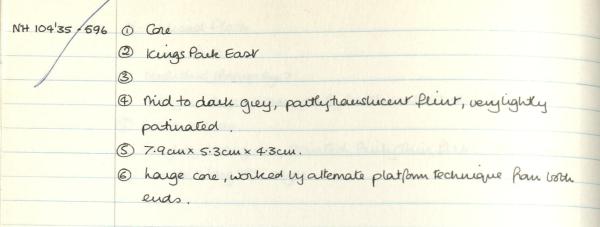 NH 104'35 - 596 ① Core
② Kings Park East
③
④ Mid to dark grey, partly translucent flint, very lightly
patinated.
⑤ 7.9cm x 5.3cm x 4.3cm.
⑥ Large core, worked by alternate platform technique from both
ends.